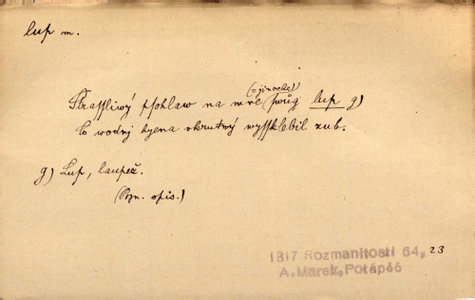 lup m.
(= jinocha)
Strassliwý psohlaw na mně swůg lup g)
Co wodnj hyena ukrutný wyssklebil zub.
g) Lup, laupež.
(Pozn. opis.)
1817 Rozmanitosti 64, 23
A. Marek, Potápěč